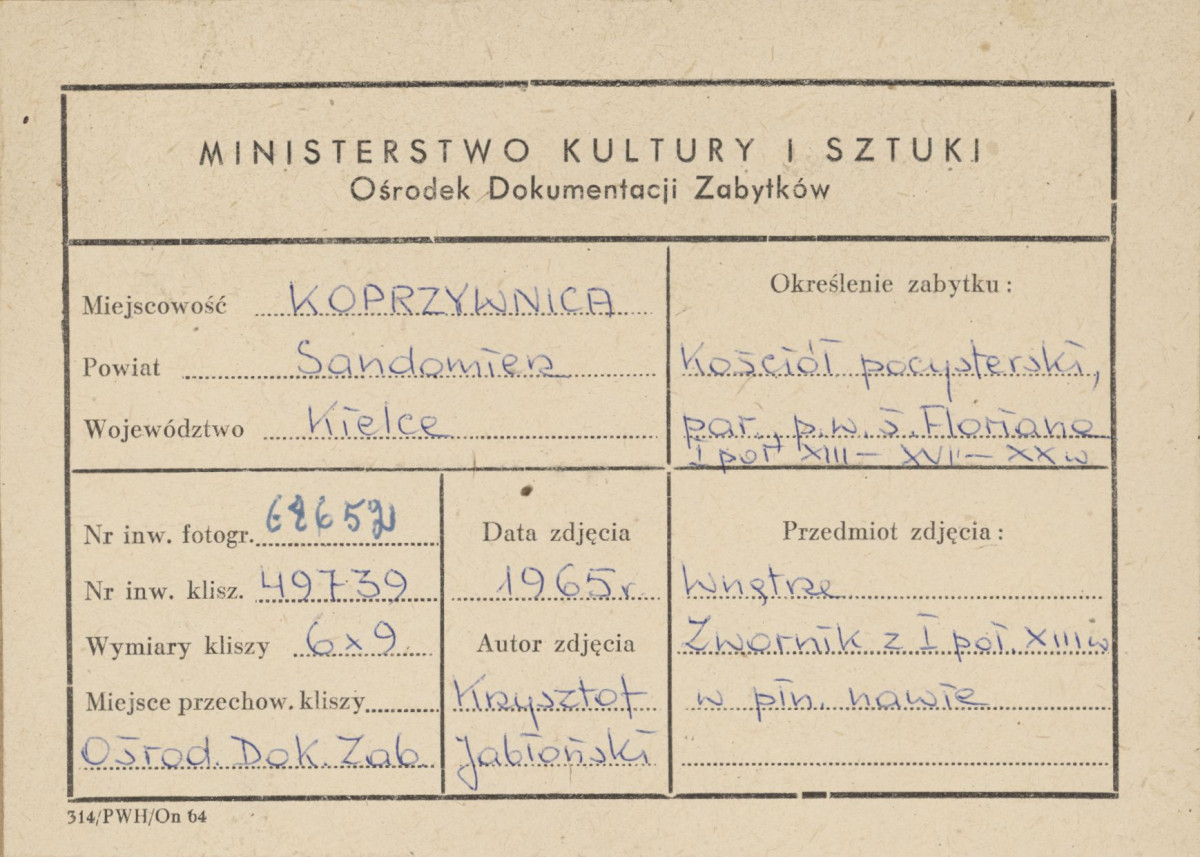 MINISTERSTWO KULTURY I SZTUKI
Ośrodek Dokumentacji Zabytków
Miejscowość KOPRZYWNICA
Powiat Sandomierz
Województwo Kielce
Określenie zabytku:
Kościół pocysterski,
par., p.w. ś. Floriana
I poł XIII – XVI – XX w
Nr inw. fotogr.
Nr inw. klisz. 49739
Wymiary kliszy 6x9
Miejsce przechow. kliszy
Ośrod. Dok. Zab.
Data zdjęcia
1965 r.
Autor zdjęcia
Krzysztof
Jabłoński
Przedmiot zdjęcia:
Wnętrze
Zwornik z I poł. XIII w
w płn. nawie
314/PWH/On 64